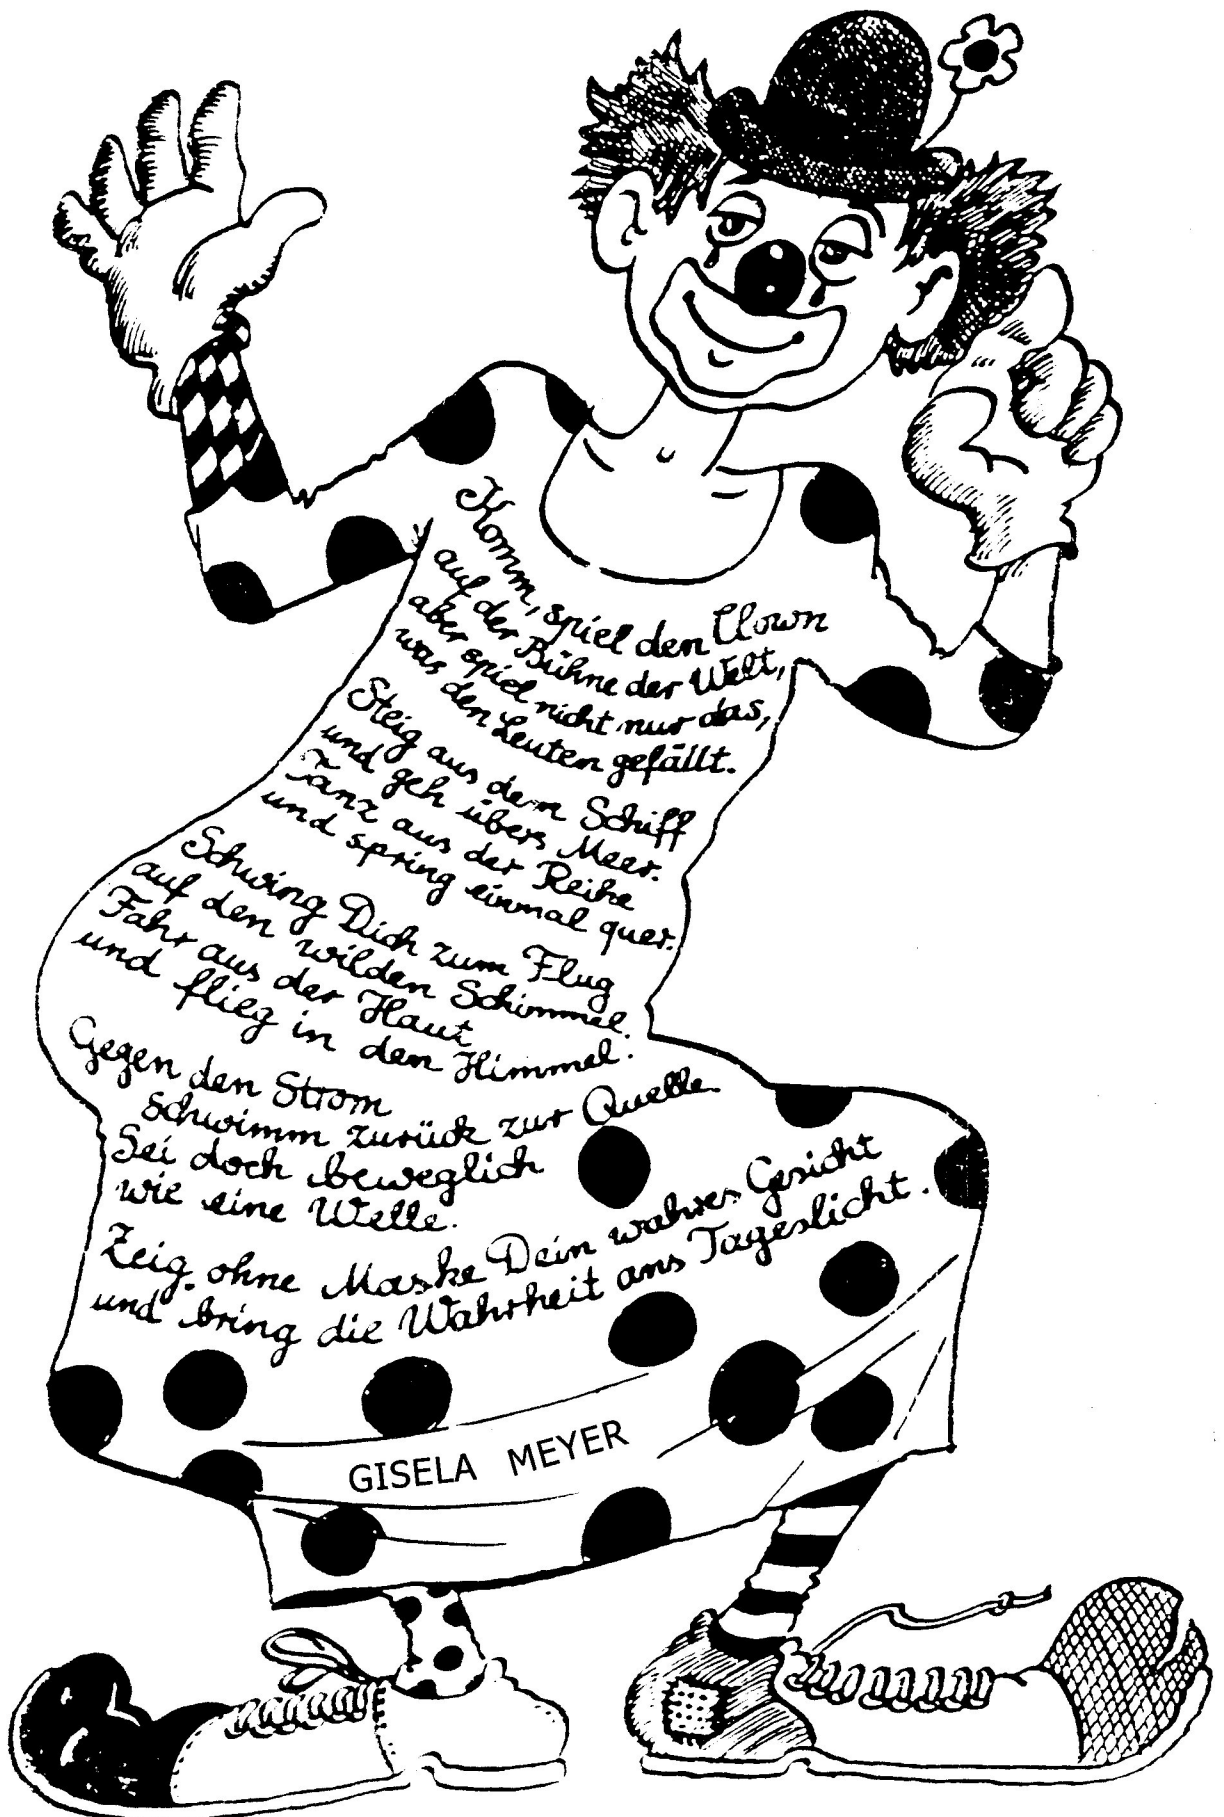 Komm, spiel den Clown
auf der Bühne der Welt,
aber spiel nicht nur das,
was den Leuten gefällt.
Steig aus dem Schiff
und geh übers Meer.
Tanz aus der Reihe
und spring einmal quer.
Schwing Dich zum Flug
auf den wilden Schimmel.
Fahr aus der Haut
und flieg in den Himmel.
Gegen den Strom
schwimm zurück zur Quelle.
Sei doch beweglich
wie eine Welle.
Zeig ohne Maske Dein wahres Gesicht
und bring die Wahrheit ans Tageslicht.
GISELA MEYER